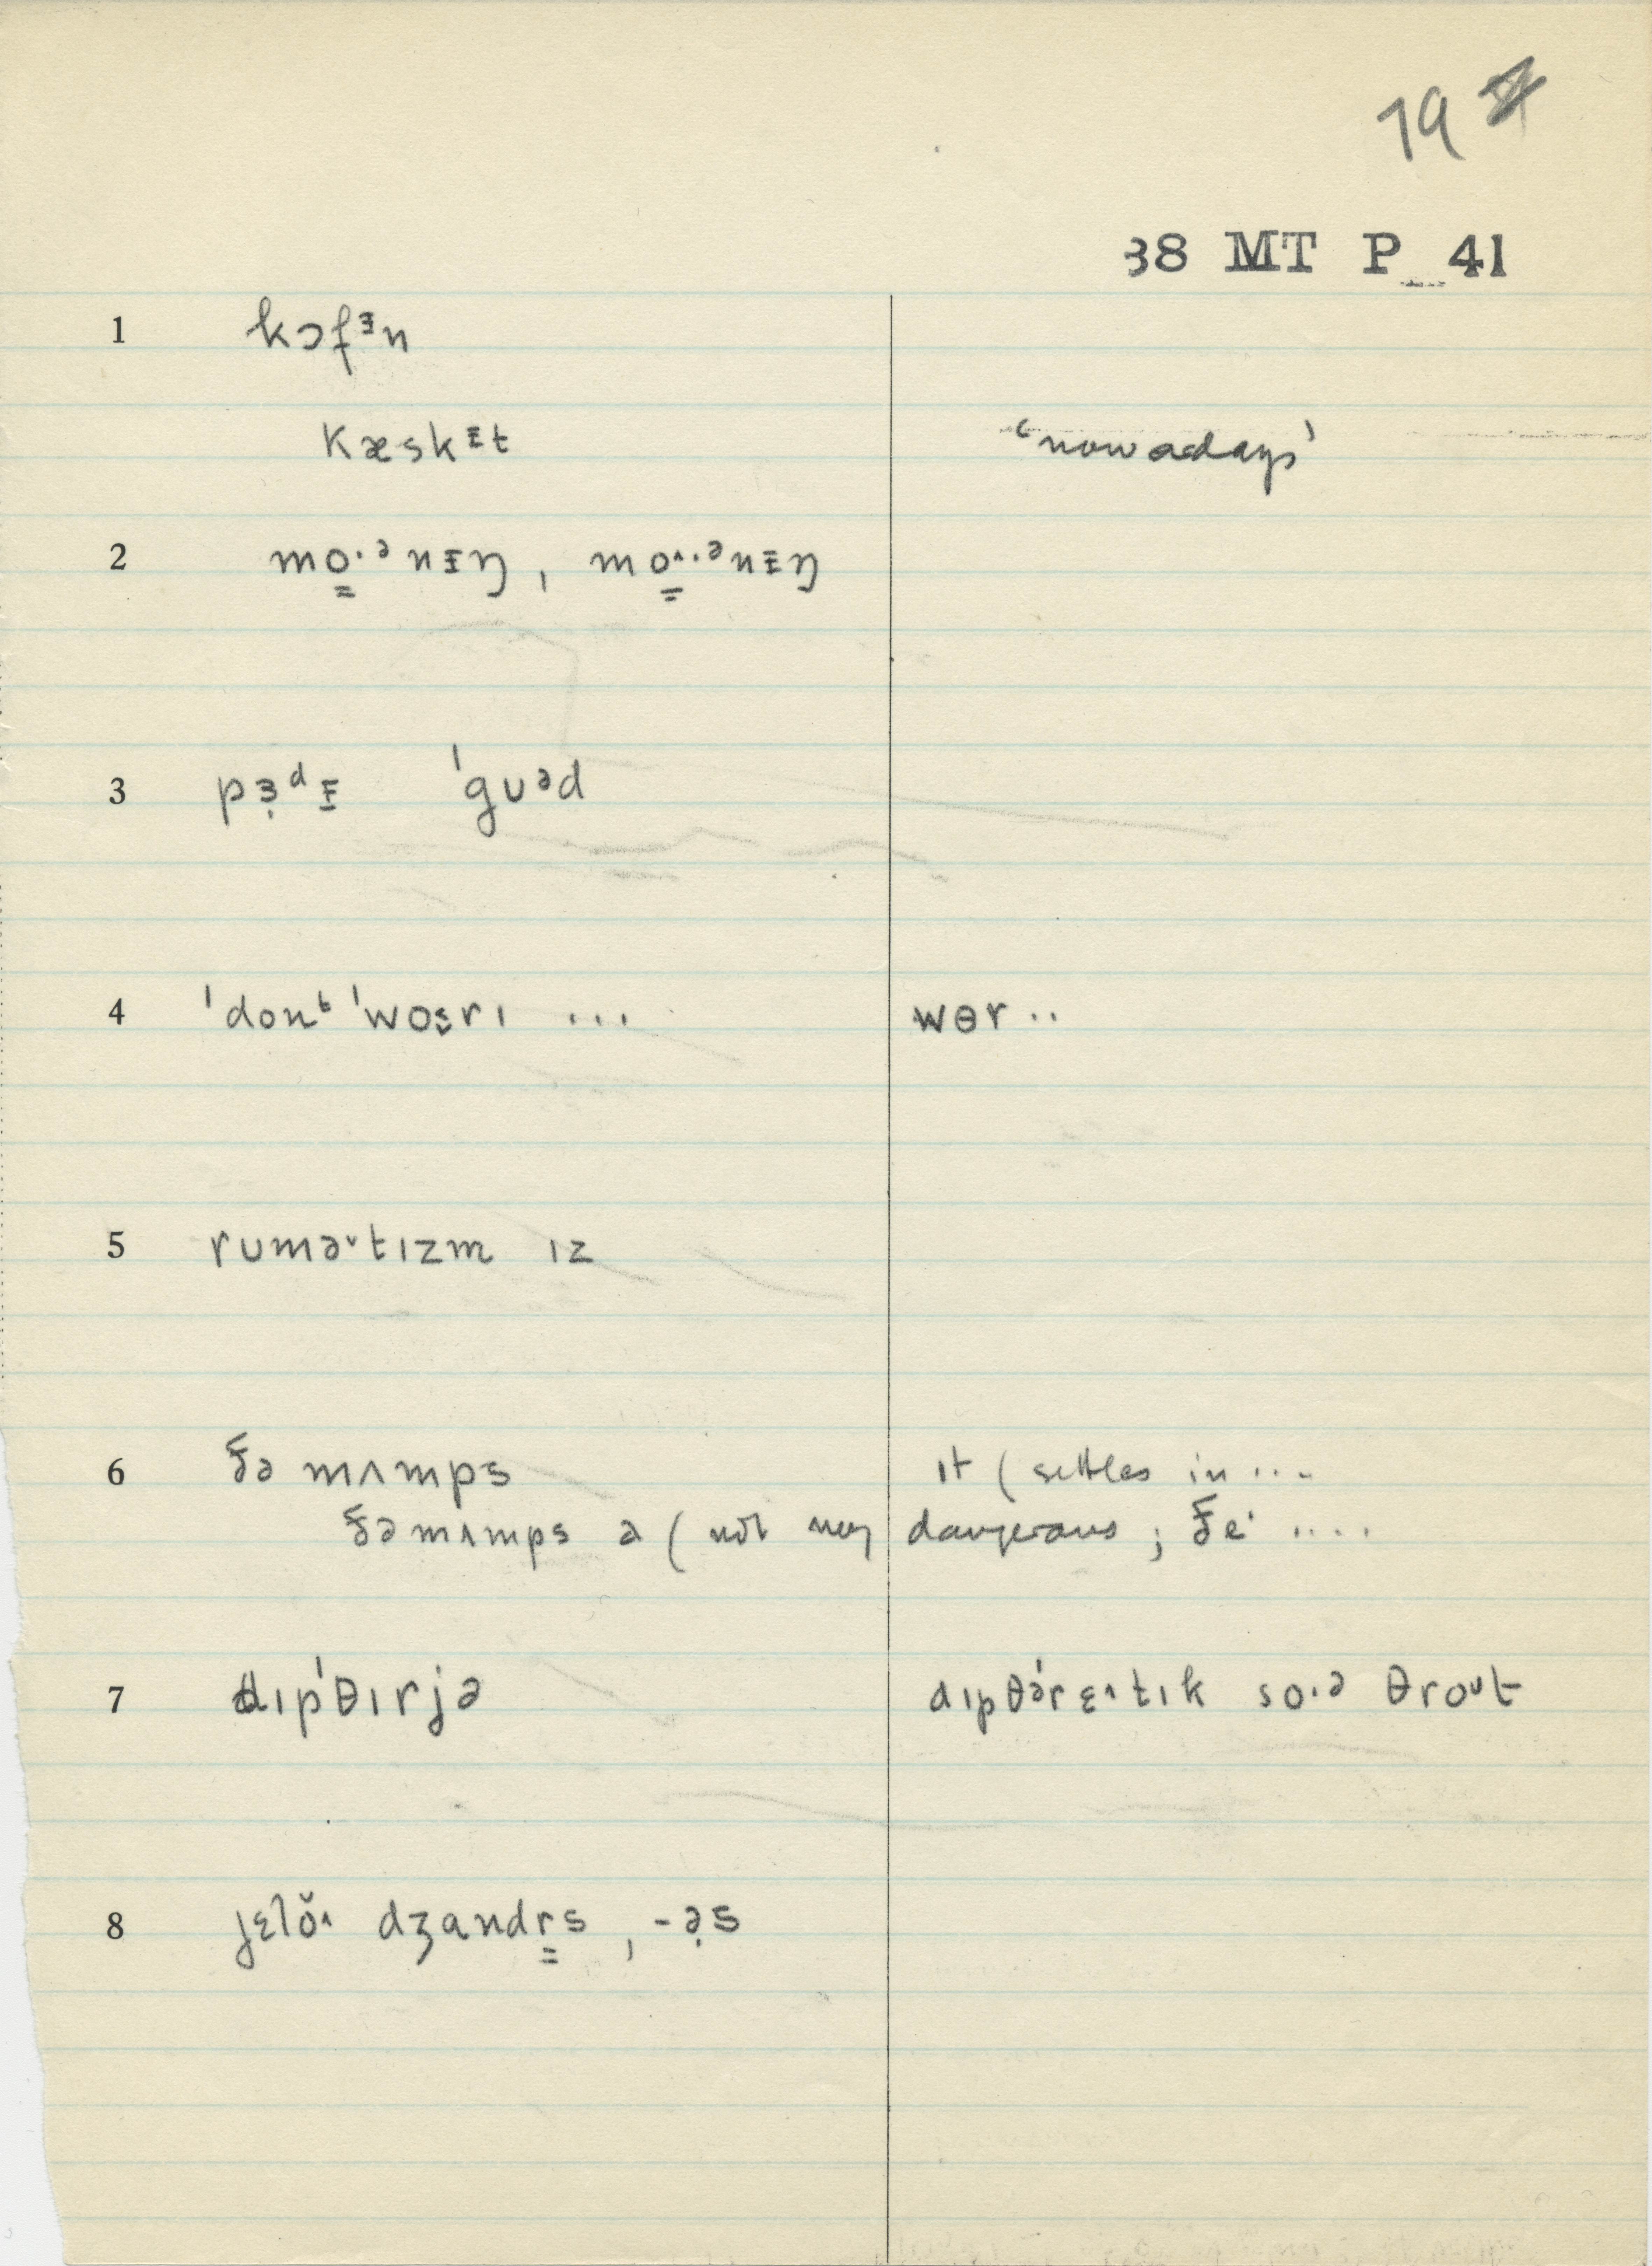 19
38 MT P 41
1 kɔfᵻn
kæskᵻt ‘nowadays’
2 mo̳·ᵊnɪ̵ŋ, mo̳˄·ᵊnɪ̵ŋ
3 pɜ̣ᵈɪ̵ ˈguᵊd
4 ˈdonᵗ ˈwoɪ ... wɵr ..
5 rumə˅tɪzm ɪz
6 ðə mʌmps ɪt (settles in ...
ðə mʌmps a (not very dangerous; ðe· ....
7 dɪpˈθɪrjə dɪpθərɛ˄tɪk so·ə θroᶸt
8 jɛlŏ˄ dʒandr̳s, -ə̣s